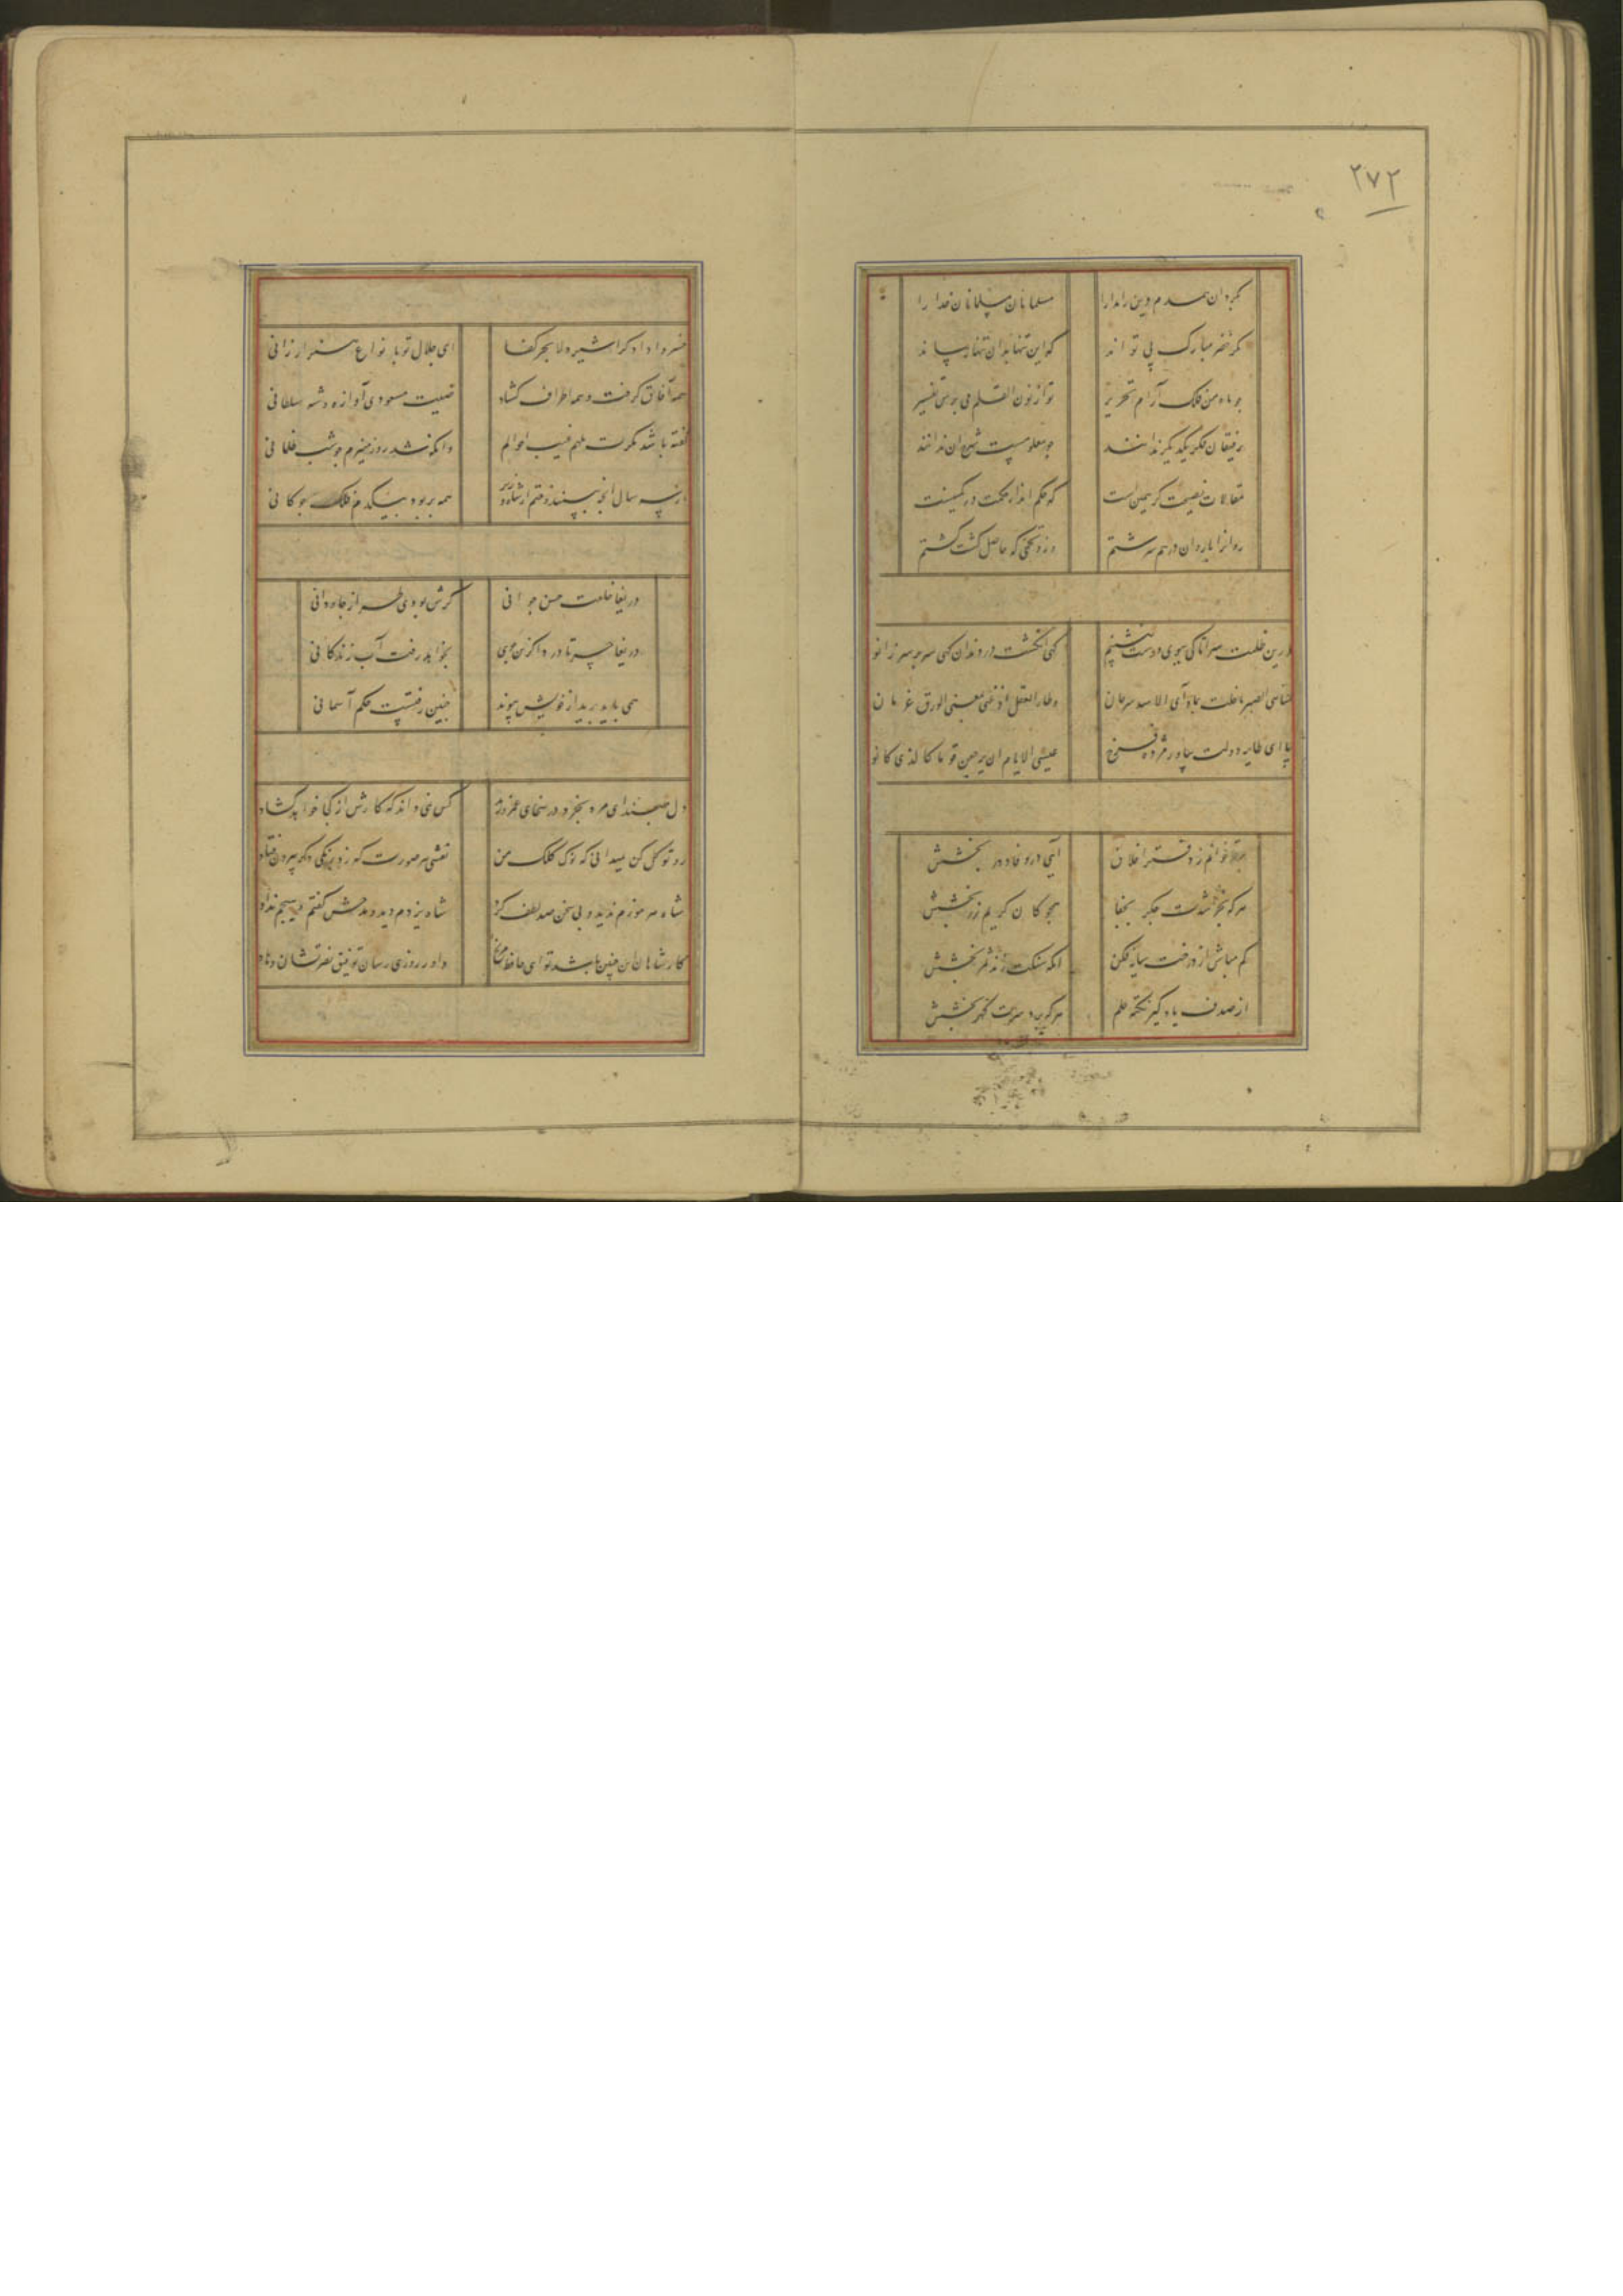 ۲۷۲
نکرد آن همدم دیرین مدارا مسلمانان مسلمانان خدا را
مگر خضر مبارک پی تواند که این تنها بدان تنها رساند
چو ماه من فلک آرام تحریر تو از نون القلم می پرس تفسیر
رفیقان قدر یکدیگر ندانند چو معلومست شرح از بر نخوانند
مقالات نصیحت گر همین است که حکم انداز هجرت در کمینست
روانرا با خرد در هم سرشتم وزو تخمی که حاصل گشت کشتم
درین ظلمت سرا تا کی ببوی دوست بنشینم کهی انگشت در دندان کهی سر بر سر زانو
تناهی الصبر مذ حلت بمأوی الاسد سرحان و طار العقل اذ غنی بمغنی الورق غربان
بیا ای طایر دولت بیاور مژده وصلی عسی الایام ان یرجعن قوما کالذی کانوا
بر تو خوانم ز دفتر اخلاق آیتی در وفا و در بخشش
هر که بخراشدت جگر بجفا همچو کان کریم زر بخشش
کم مباش از درخت سایه فکن هر که سنگت زند ثمر بخشش
از صدف یاد گیر نکته حلم هر که برد سرت گهر بخشش
خسروا دادگرا شیردلا بحرکفا ای جلال تو بانواع هنر ارزانی
همه آفاق گرفت و همه اطراف گشاد صیت مسعودی و آوازه شه سلطانی
گفته باشد مگرت ملهم غیب احوالم وانکه شد روز منیرم چو شب ظلمانی
در سه سال آنچه بیندوختم از شاه و وزیر همه بربود بیکدم فلک چوکانی
دریغا خلعت حسن جوانی گرش بودی طراز جاودانی
دریغا حسرتا دردا کزین جوی بخواهد رفت آب زندگانی
همی باید برید از خویش و پیوند چنین رفتست حکم آسمانی
دل مبند ای مرد بخرد در سخای عمرو و زید کس نمی داند که کارش از کجا خواهد گشاد
رو توکل کن نمیدانی که نوک کلک من نقشی هر صورت که زد رنگی دگر بیرون فتاد
شاه هرموزم ندید و بی سخن صد لطف کرد شاه یزدم دید و مدحش گفتم و هیچم نداد
کار شاهان این چنین باشد تو ای حافظ مرنج داور روزی رسان توفیق نصرتشان دهاد